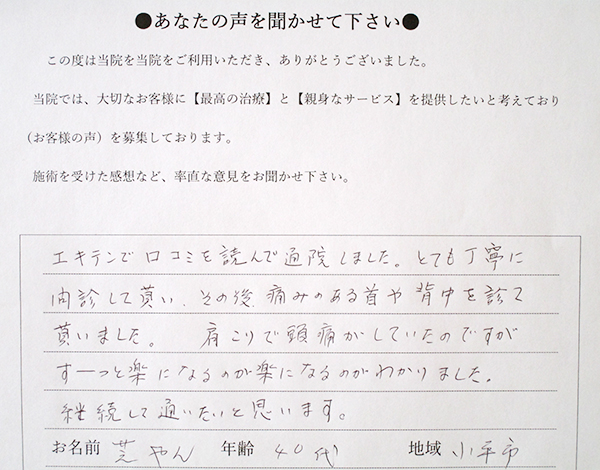 ●あなたの声を聞かせて下さい●
この度は当院を当院をご利用いただき、ありがとうございました。
当院では、大切なお客様に【最高の治療】と【親身なサービス】を提供したいと考えており
(お客様の声）を募集しております。
施術を受けた感想など、率直な意見をお聞かせ下さい。
エキテンで口コミを読んで通院しました。とても丁寧に
問診して貰い、その後、痛みのある首や背中を診て
貰いました。 肩こりで頭痛がしていたのですが
すーっと楽になるのが楽になるのがわかりました。
継続して通いたいと思います。
お名前 芝やん 年齢 40代 地域 小平市